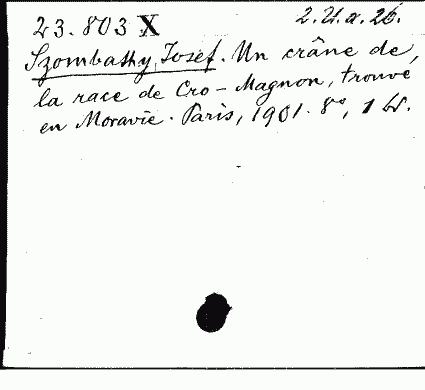 23.803 X 2.U.a.26.
Szombathy, Josef. Un crâne de
la race de Cro-Magnon, trouvé
en Moravie. Paris, 1901. 8°, 1 W.